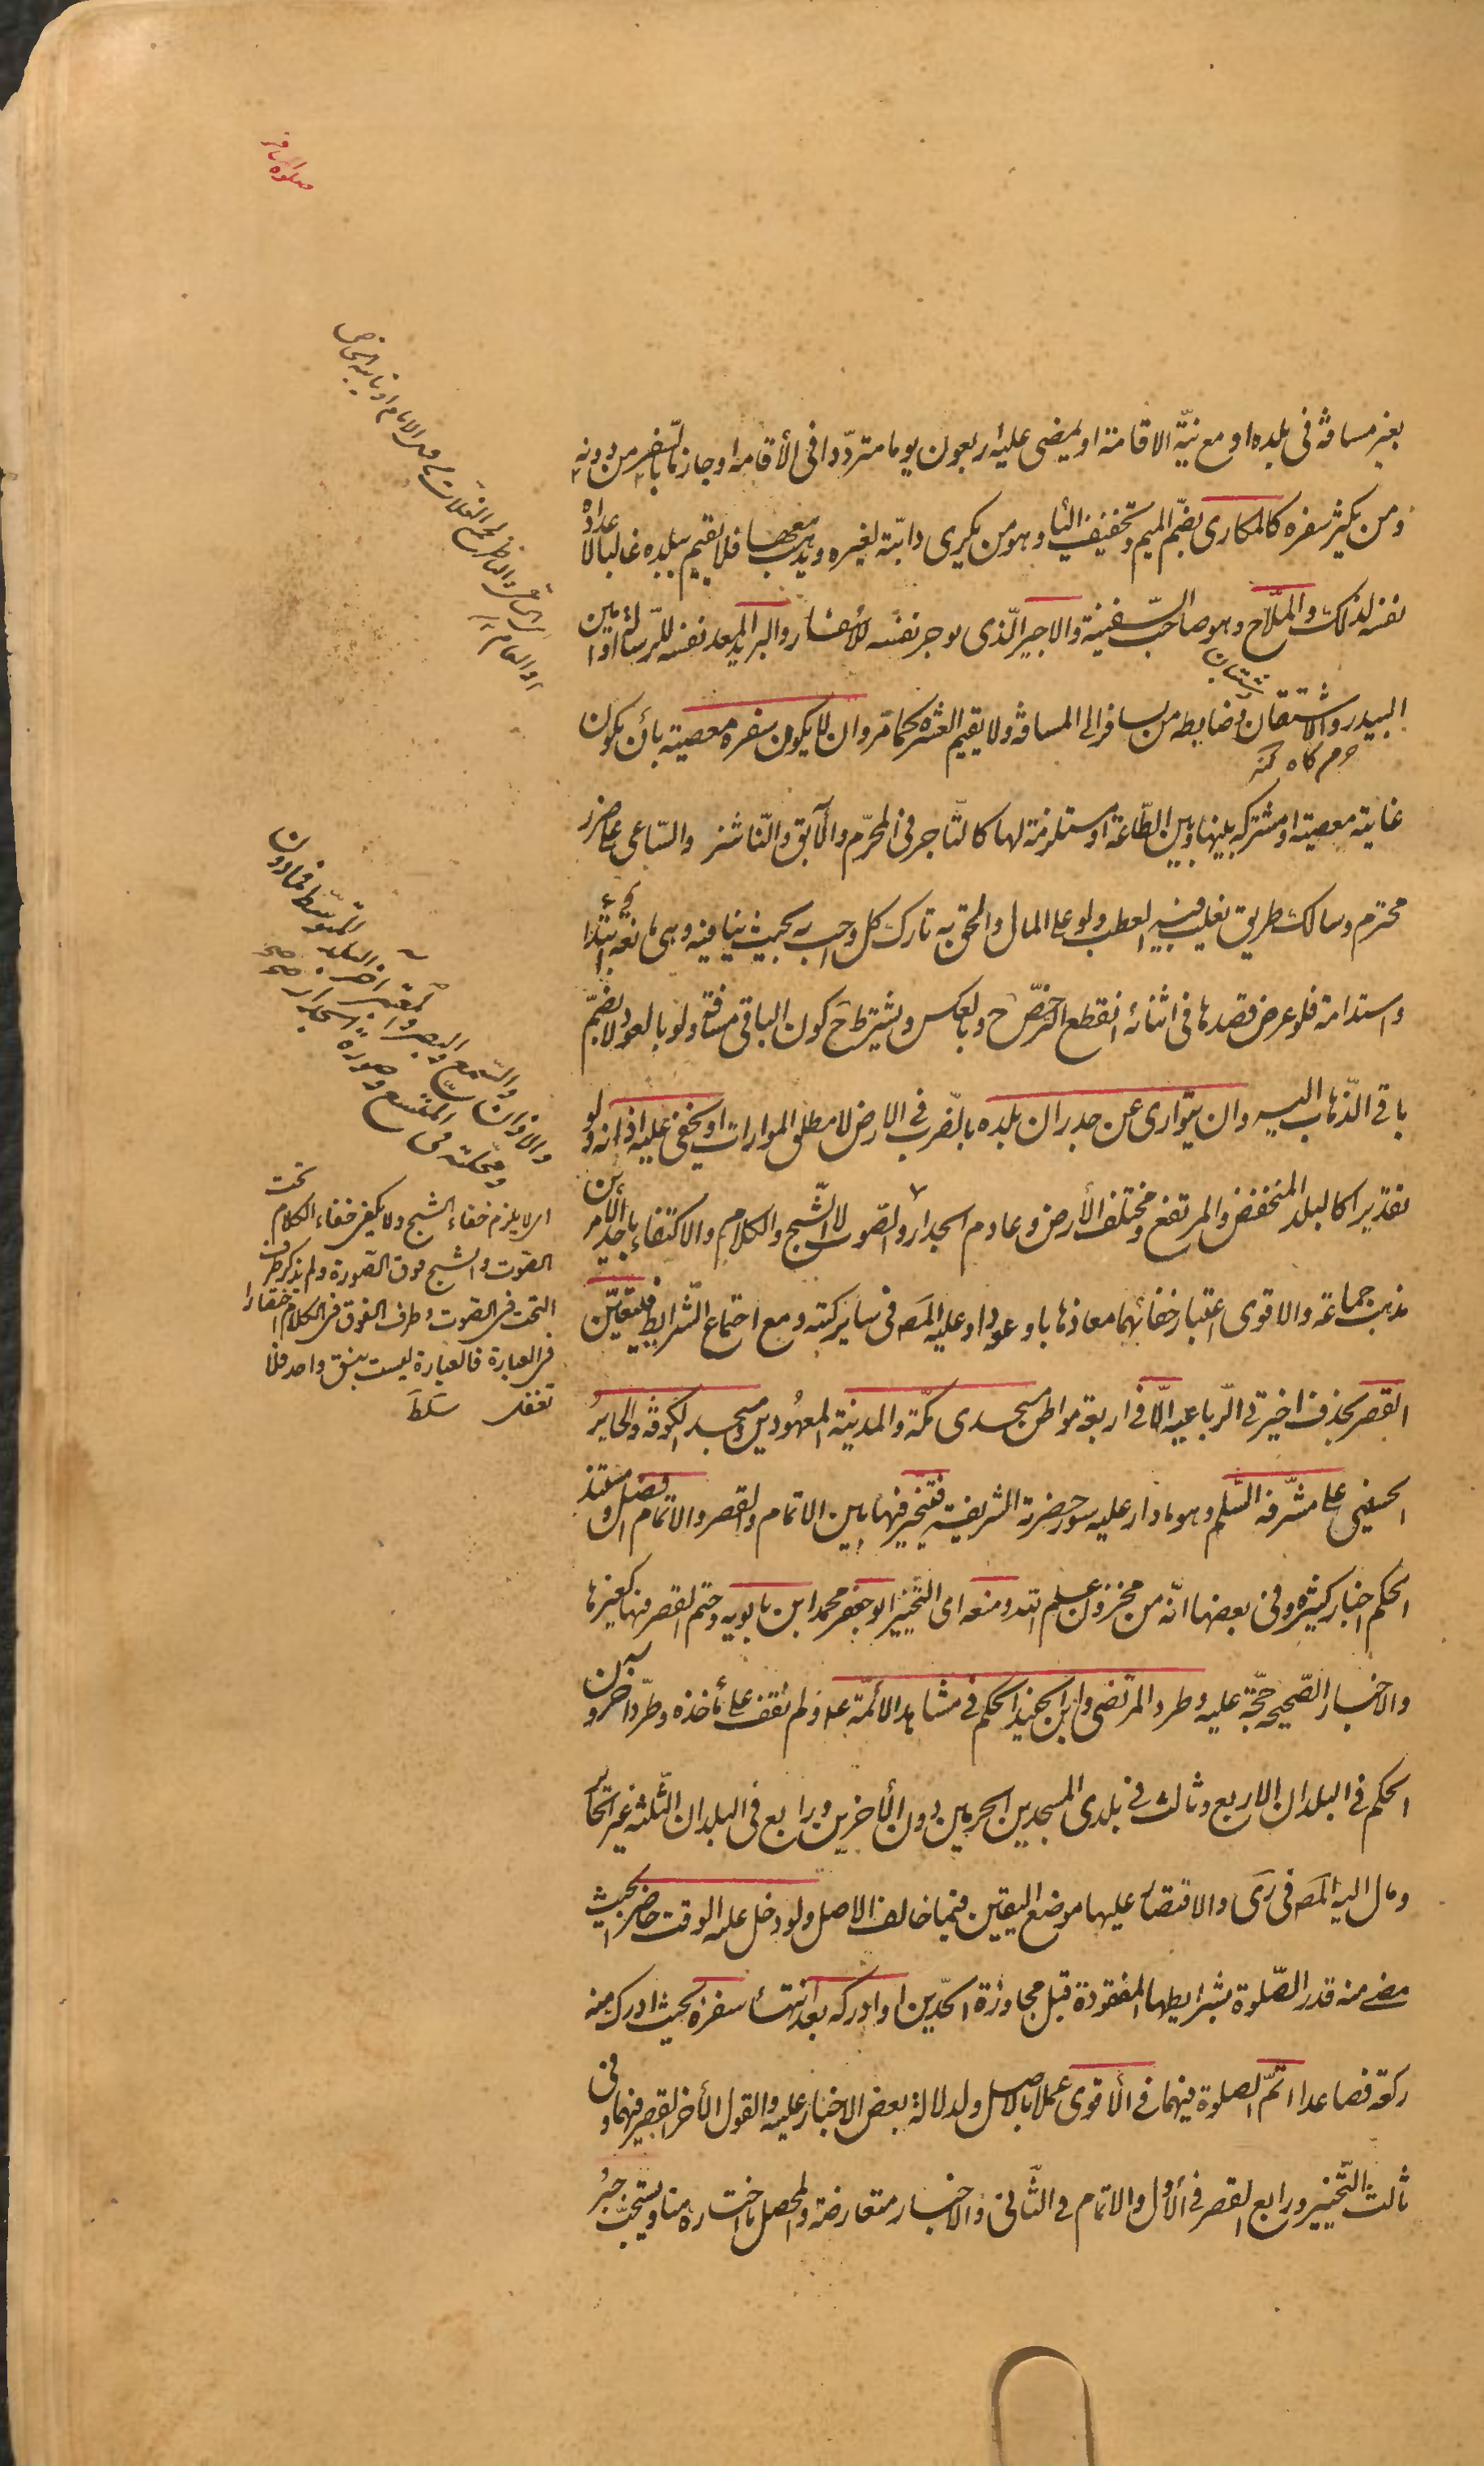 صلوة المسافر
بغير مسافة فى بلده او مع نيّة الاقامة او يمضى عليه اربعون يوما متردّدا فى الأقامة او جازما بالسّفر من دونه
ومن يكثر سفره كالمكارى بضمّ الميم وتخفيف اليا وهو من يكرى دابّته لغيره ويذهب معها فلا يقيم ببلده غالبا لاعداده
نفسه لذلك والملّاح وهو صاحب السّفينة والاجير الّذى يوجر نفسه للأسفار والبريد المعد نفسه للرّسالة او امين
البيدر والاشتقان وضابطه من يسافر الى المسافة ولا يقيم العشرة كما مّر وان لا يكون سفره معصية بأن يكون
خرم كاه كنه
غايته معصية او مشتركه بينها وبين الطّاعة او مستلزمة لها كالتّاجر فى المحرّم والآبق والنّاشز والسّاعى على ضرر
محترم وسالك طريق يغلب فيه العطب ولو على المال والحق به تارك كل واجب به بحيث ينافيه وهى مانعة ابتدا
واستدامة فلو عرض قصدها فى اثنائه انقطع الترخّص ح وبالعكس ويشترط ح كون الباقى مسافة ولو بالعود ولا يضمّ
باقى الذّهاب اليه وان يتوارى عن جدران بلده بالضّرب فى الارض لا مطلق الموارات او يخفى عليه اذانه ولو
تقديرا كالبلد المنخفض والمرتفع ومختلف الأرض وعادم الجدار والصّوت لا الشّبح والكلام والاكتفاء بأحد الأمرين
مذهب جماعة والاقوى اعتبار خفائهما معا ذهابا وعودا وعليه المصَ فى ساير كتبه ومع اجتماع الشّرايط فيتعيّن
القصر بحذف اخيرتى الرّباعيه الّا فى اربعة مواطن مسجدى مكّة والمدينة المعهودين ومسجد الكوفة والحاير
الحسينى على مشرّفه السّلم وهو ما دار عليه سور حضرته الشريفة فيتخير فيها بين الاتمام والقصر والاتمام افضل ومستند
الحكم اخبار كثيرة وفى بعضها انّه من مخزون علم الله ومنعه اى التّخيير ابو جعفر محمد ابن بابويه وحتم القصر فيها كغيرها
والاخبار الصّحيحه حجّة عليه وطرد المرتضى وابن الجنيد الحكم فى مشاهد الأئمّة علد ولم نقف على مأخذه وطرّد اخرون
الحكم فى البلدان الاربع وثالث فى بلدى المسجدين الحرمين دون الأخرين ورابع فى البلدان الثّلثة غير الحائر
ومال اليه المصَ فى رَى والاقتصار عليها موضع اليقين فيما خالف الاصل ولو دخل عليه الوقت حاضرا بحيث
مضى منه قدر الصّلوة بشرايطها المفقودة قبل مجاوزة الحدّين او ادركه بعد انتهاء سفره بحيث ادرك منه
ركعة فصاعدا اتمّ الصلوة فيهما فى الأقوى عملا بالاصل ولدلالة بعض الاخبار عليه والقول الأخر القصر فيهما وفى
ثالث التّخيير ورابع القصر فى الأوّل والاتمام فى الثّانى والاخبار متعارضة والمحصل ما اختاره هنا ويستحبّ جبر
والاذان والسّمع والبصر
اى لا يلزم خفاء الشبح ولا يكفى خفاء الكلام تحت
الصوت والشبح فوق الصورة ولم يذكر طرف
التحت فى الصوت وطرف الفوق فى الكلام اختصارا
فى العبارة فالعبارة ليست بنسق واحد فلا
تغفل